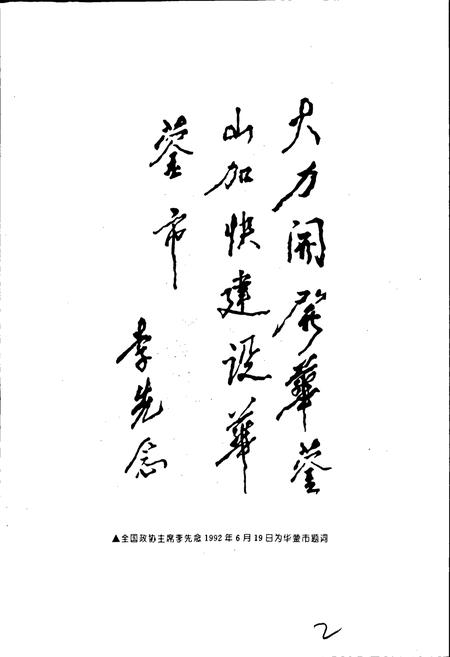 大力開發華蓥
山加快建设華
蓥市
李先念
▲全国政协主席李先念1992年6月19日为华蓥市题词
2